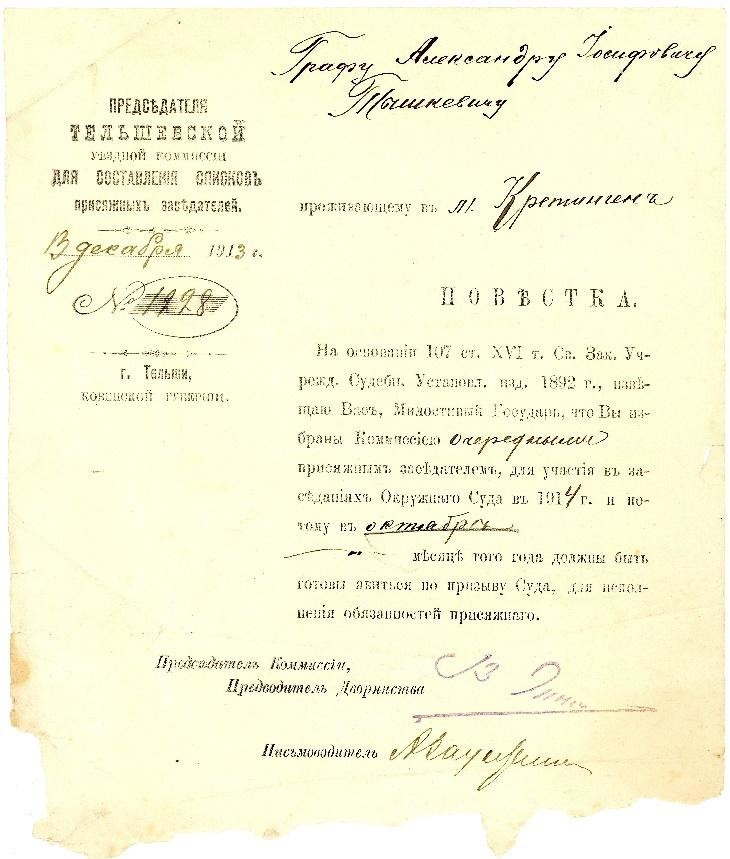 Графу Александру Іосифовичу
Тышкевичу
ПРЕДСѢДАТЕЛЯ
ТЕЛЬШЕВСКОЙ
УѢЗДНОЙ КОММИССІИ
ДЛЯ СОСТАВЛЕНІЯ СПИСКОВЪ
ПРИСЯЖНЫХЪ ЗАСѢДАТЕЛЕЙ.
13 декабря 1913 г.
№ 1228
г. Тельши,
КОВЕНСКОЙ ГУБЕРНІИ.
проживающему въ м. Кретингенъ
ПОВѢСТКА.
На основаніи 107 ст. XVI т. Св. Зак. Уч-
режд. Судебн. Установл. изд. 1892 г., извѣ-
щаю Васъ, Милостивый Государь, что Вы из-
браны Коммиссіею очереднымъ
присяжнымъ засѣдателемъ, для участія въ за-
сѣданіяхъ Окружнаго Суда въ 1914 г. и по-
тому въ октябрѣ
мѣсяцѣ того года должны быть
готовы явиться по призыву Суда, для испол-
ненія обязанностей присяжнаго.
Предсѣдатель Коммиссіи,
Предводитель Дворянства
Письмоводитель